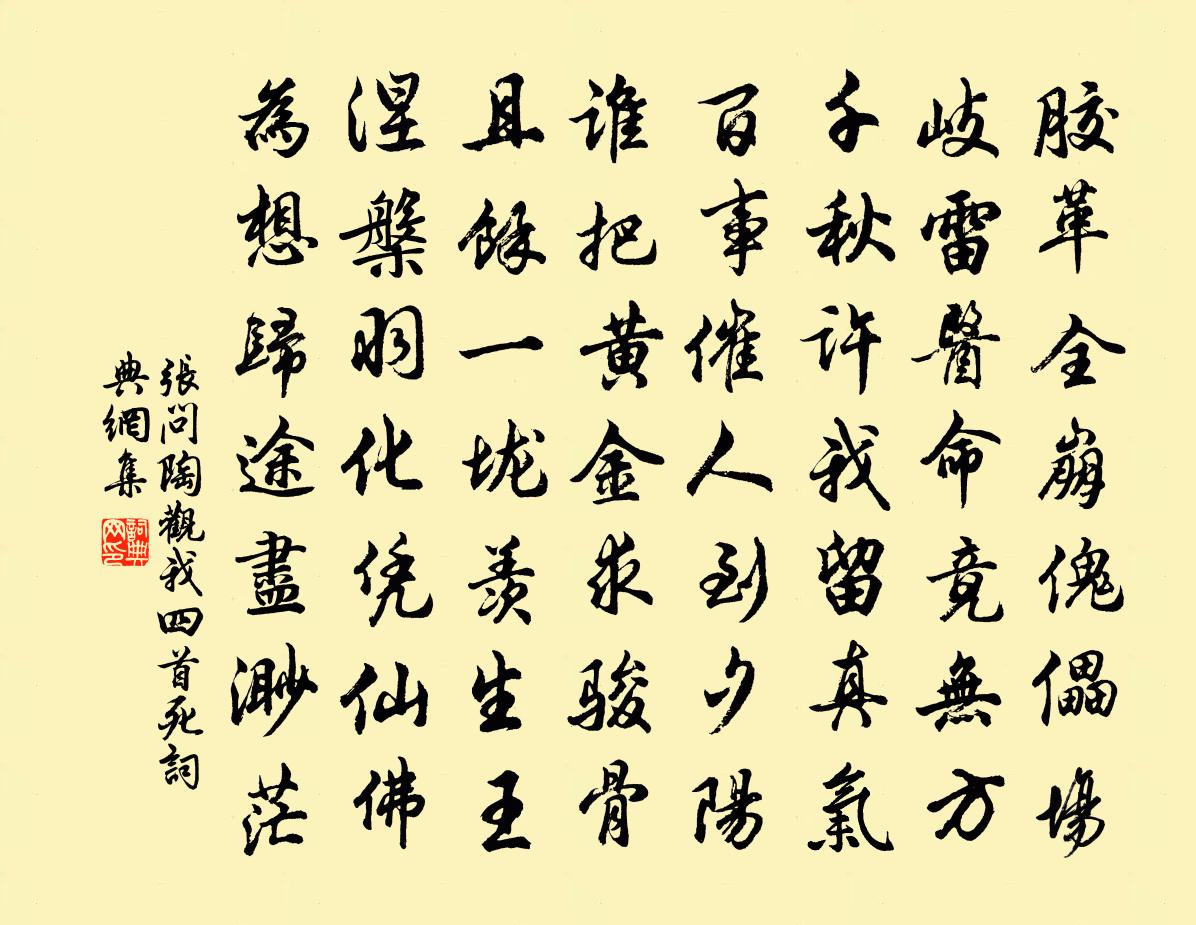 胶革全崩傀儡場
岐雷醫命竟無方
千秋許我留真氣
百事催人到夕陽
誰把黄金求駿骨
且餘一垅羨生王
涅槃羽化凭仙佛
為想歸途盡渺茫
張問陶觀我四首死詞
典網集
詞典
网印